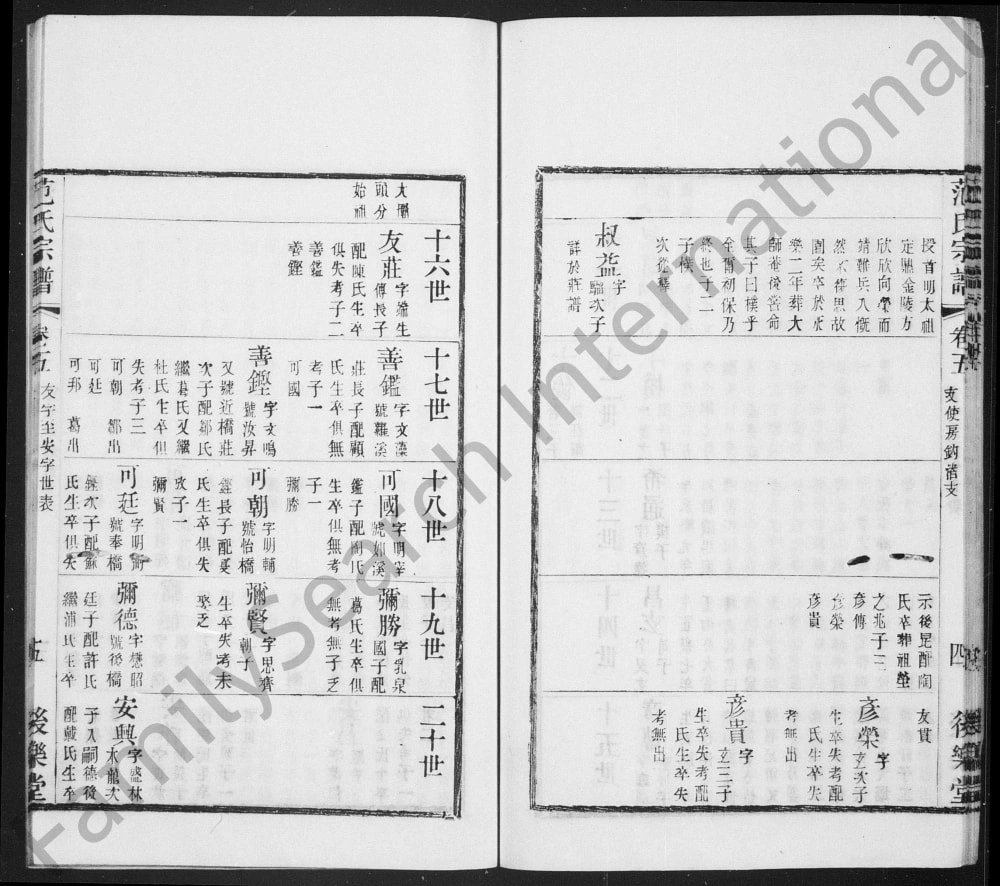 范氏宗譜
卷五
支使房鈞諸支
四
後樂堂
授首明太祖
定鼎金陵方
欣欣向榮而
靖難兵入慨
然不
園矣卒於永
樂二年葬大
師菴後嘗命
其子曰樸乎
全爾初保乃
終也子二
子樸
次從釋
叔益字
驌次子
詳於莊譜
示後昆配陶
氏卒葬祖塋
之兆子三
彥傅
彥榮
彥貴
友貫
彥榮字
玄次子
生卒失考配
氏生卒失
考無出
彥貴字
玄三子
生卒失考配
氏生卒失
考無出
十六世
十七世
十八世
十九世
二十世
大
頭分
始祖
友莊字
傅長子
配陳氏生卒
俱失考子二
善鑑
善鏗
善鑑字文藻
號蘿溪
莊長子配顧
氏生卒俱無
考子一
可國
善鏗字文鳴
號汝昇
又號近橋莊
次子配鄒氏
繼葛氏又繼
杜氏生卒俱
失考子三
可朝 鄒出
可廷
可邦 葛出
可國字明宰
號仰溪
鑑子配闵氏
生卒俱無考
子一
彌勝
可朝字明輔
號怡橋
鏗長子配夏
氏生卒俱失
攷子一
彌賢
可廷字明衝
號奉橋
鏗次子配蘇
氏生卒俱失
彌勝字乳泉
國子配
葛氏生卒俱
無考無子乏
彌賢字思齊
朝子
生卒失考未
娶乏
彌德字懋昭
號後橋
廷子配許氏
繼浦氏生卒
安興字盛林
木龍次
子入嗣德後
配戴氏生卒
范氏宗譜
卷五
友字至安字世表
五
後樂堂
FamilySearch International